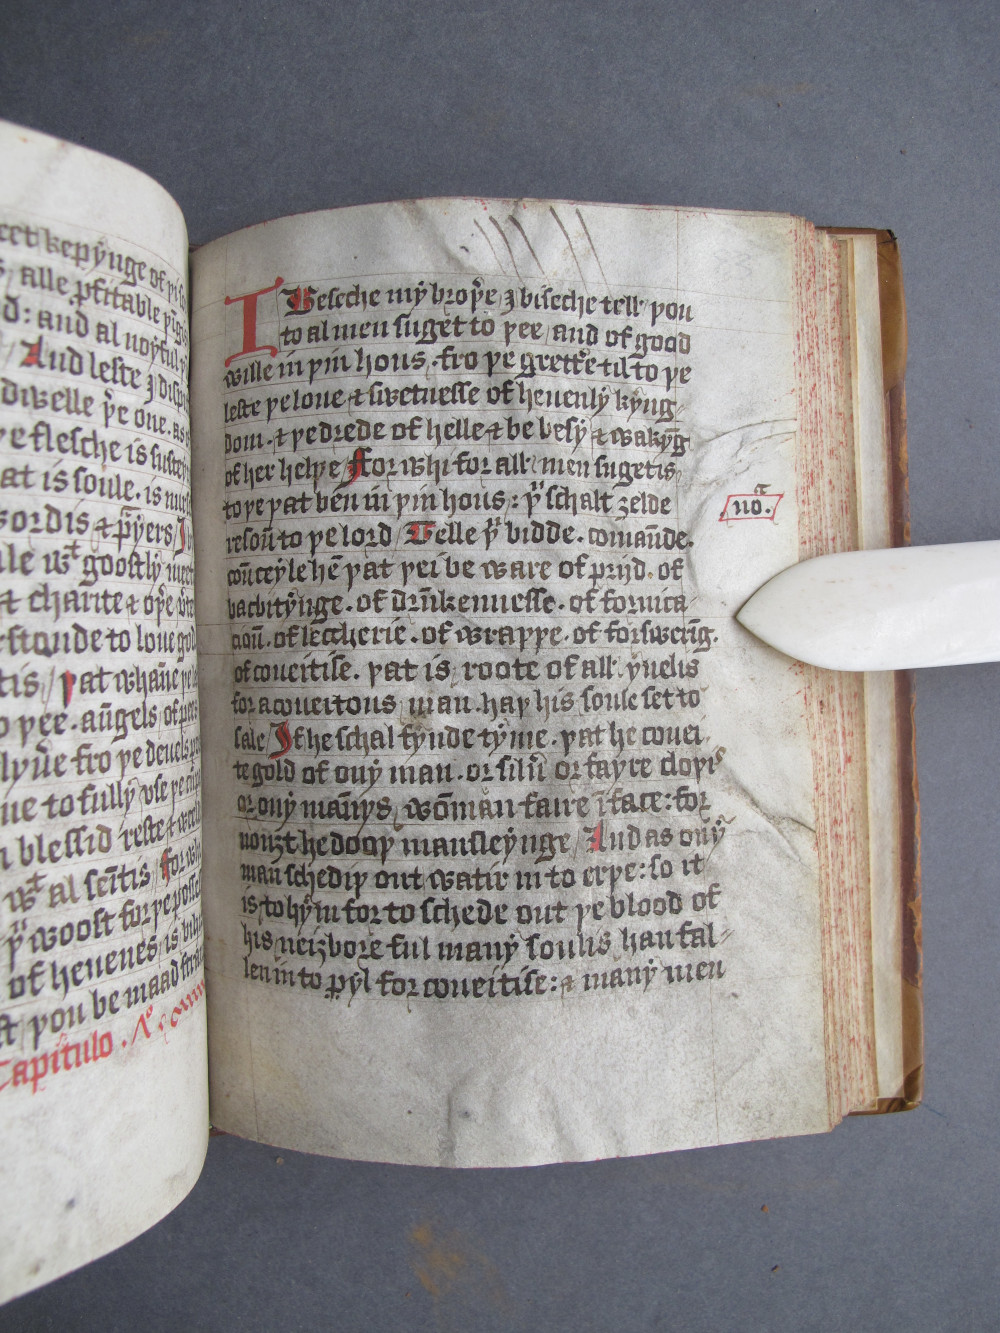 eet kepynge of þi
alle ꝓfitable þīg
d: and al noyful þ
And leste ⁊ disp
dwelle þe one. as
þe flesche is suste
at is soule. is nur
wordis ⁊ p̄yers
le wt goostly meet
⁊ charite ⁊ oþe
rstonde to loue god
tis / þat whāne þe
o þee. aūgels of pees
lyūe fro þe deuels
ne to fully vse þe
n blessid reste ⁊ wel
wt al seītis / for wh
þu woost for þe posse
of heuenes is
þou be maad
Capitulo.
I Beseche my broþe ⁊ biseche tell þou
to al men suget to þee / and of good
wille in þin hous. fro þe grette til to þe
leste þe loue ⁊ swetnesse of heuenly kyng
dom. ⁊ þe drede of helle ⁊ be besy ⁊ wakyg̅
of her helþe / For whi for all men sugetis
to þe þat ben in þin hous: þu schalt zelde
resoū to þe lord / Telle þu bidde. comaūde.
coūceyle hē þat þei be ware of prijd. of
bacbitynge. of drūkennesse. of fornica
cioū. of leccherie. of wraþþe. of forswerīg.
of coueitise. þat is roote of all yuelis
for a coueitous man. haþ his soule set to
sale / If he schal fynde tyme. þat he couei
te gold of ony man. or siluer or fayre cloþis
or ony māīys wōman faire ī face: for
nouȝt he dooþ mansleynge / And as ony
man schediþ out watir in to erþe: so it
is to hym for to schede out þe blood of
his neizbore ful many soulis han fal
len in to ꝑyl for coueitise: ⁊ many men
.nōa.